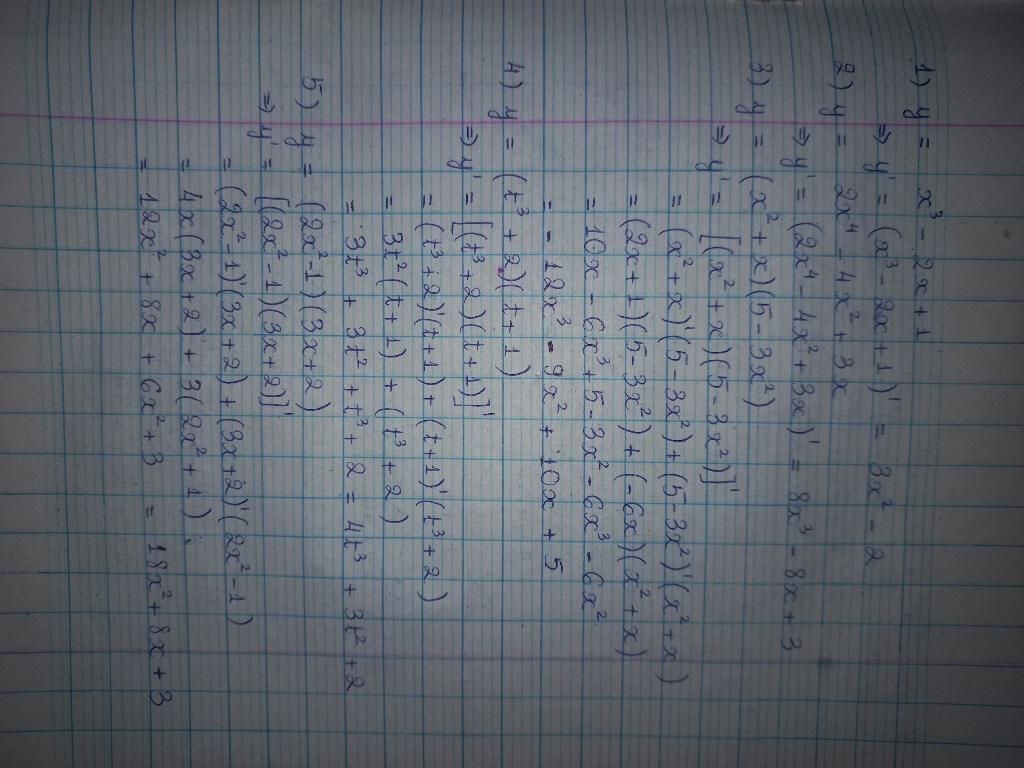 1) y = x³ - 2x + 1
⇒ y' = (x³ - 2x + 1)' = 3x² - 2
2) y = 2x⁴ - 4x² + 3x
⇒ y' = (2x⁴ - 4x² + 3x)' = 8x³ - 8x + 3
3) y = (x² + x)(5 - 3x²)
⇒ y' = [(x² + x)(5 - 3x²)]'
= (x² + x)'(5 - 3x²) + (5 - 3x²)'(x² + x)
= (2x + 1)(5 - 3x²) + (-6x)(x² + x)
= 10x - 6x³ + 5 - 3x² - 6x³ - 6x²
= - 12x³ - 9x² + 10x + 5
4) y = (t³ + 2)(t + 1)
⇒ y' = [(t³ + 2)(t + 1)]'
= (t³ + 2)'(t + 1) + (t + 1)'(t³ + 2)
= 3t²(t + 1) + (t³ + 2)
= 3t³ + 3t² + t³ + 2 = 4t³ + 3t² + 2
5) y = (2x² - 1)(3x + 2)
⇒ y' = [(2x² - 1)(3x + 2)]'
= (2x² - 1)'(3x + 2) + (3x + 2)'(2x² - 1)
= 4x(3x + 2) + 3(2x² + 1)
= 12x² + 8x + 6x² + 3 = 18x² + 8x + 3